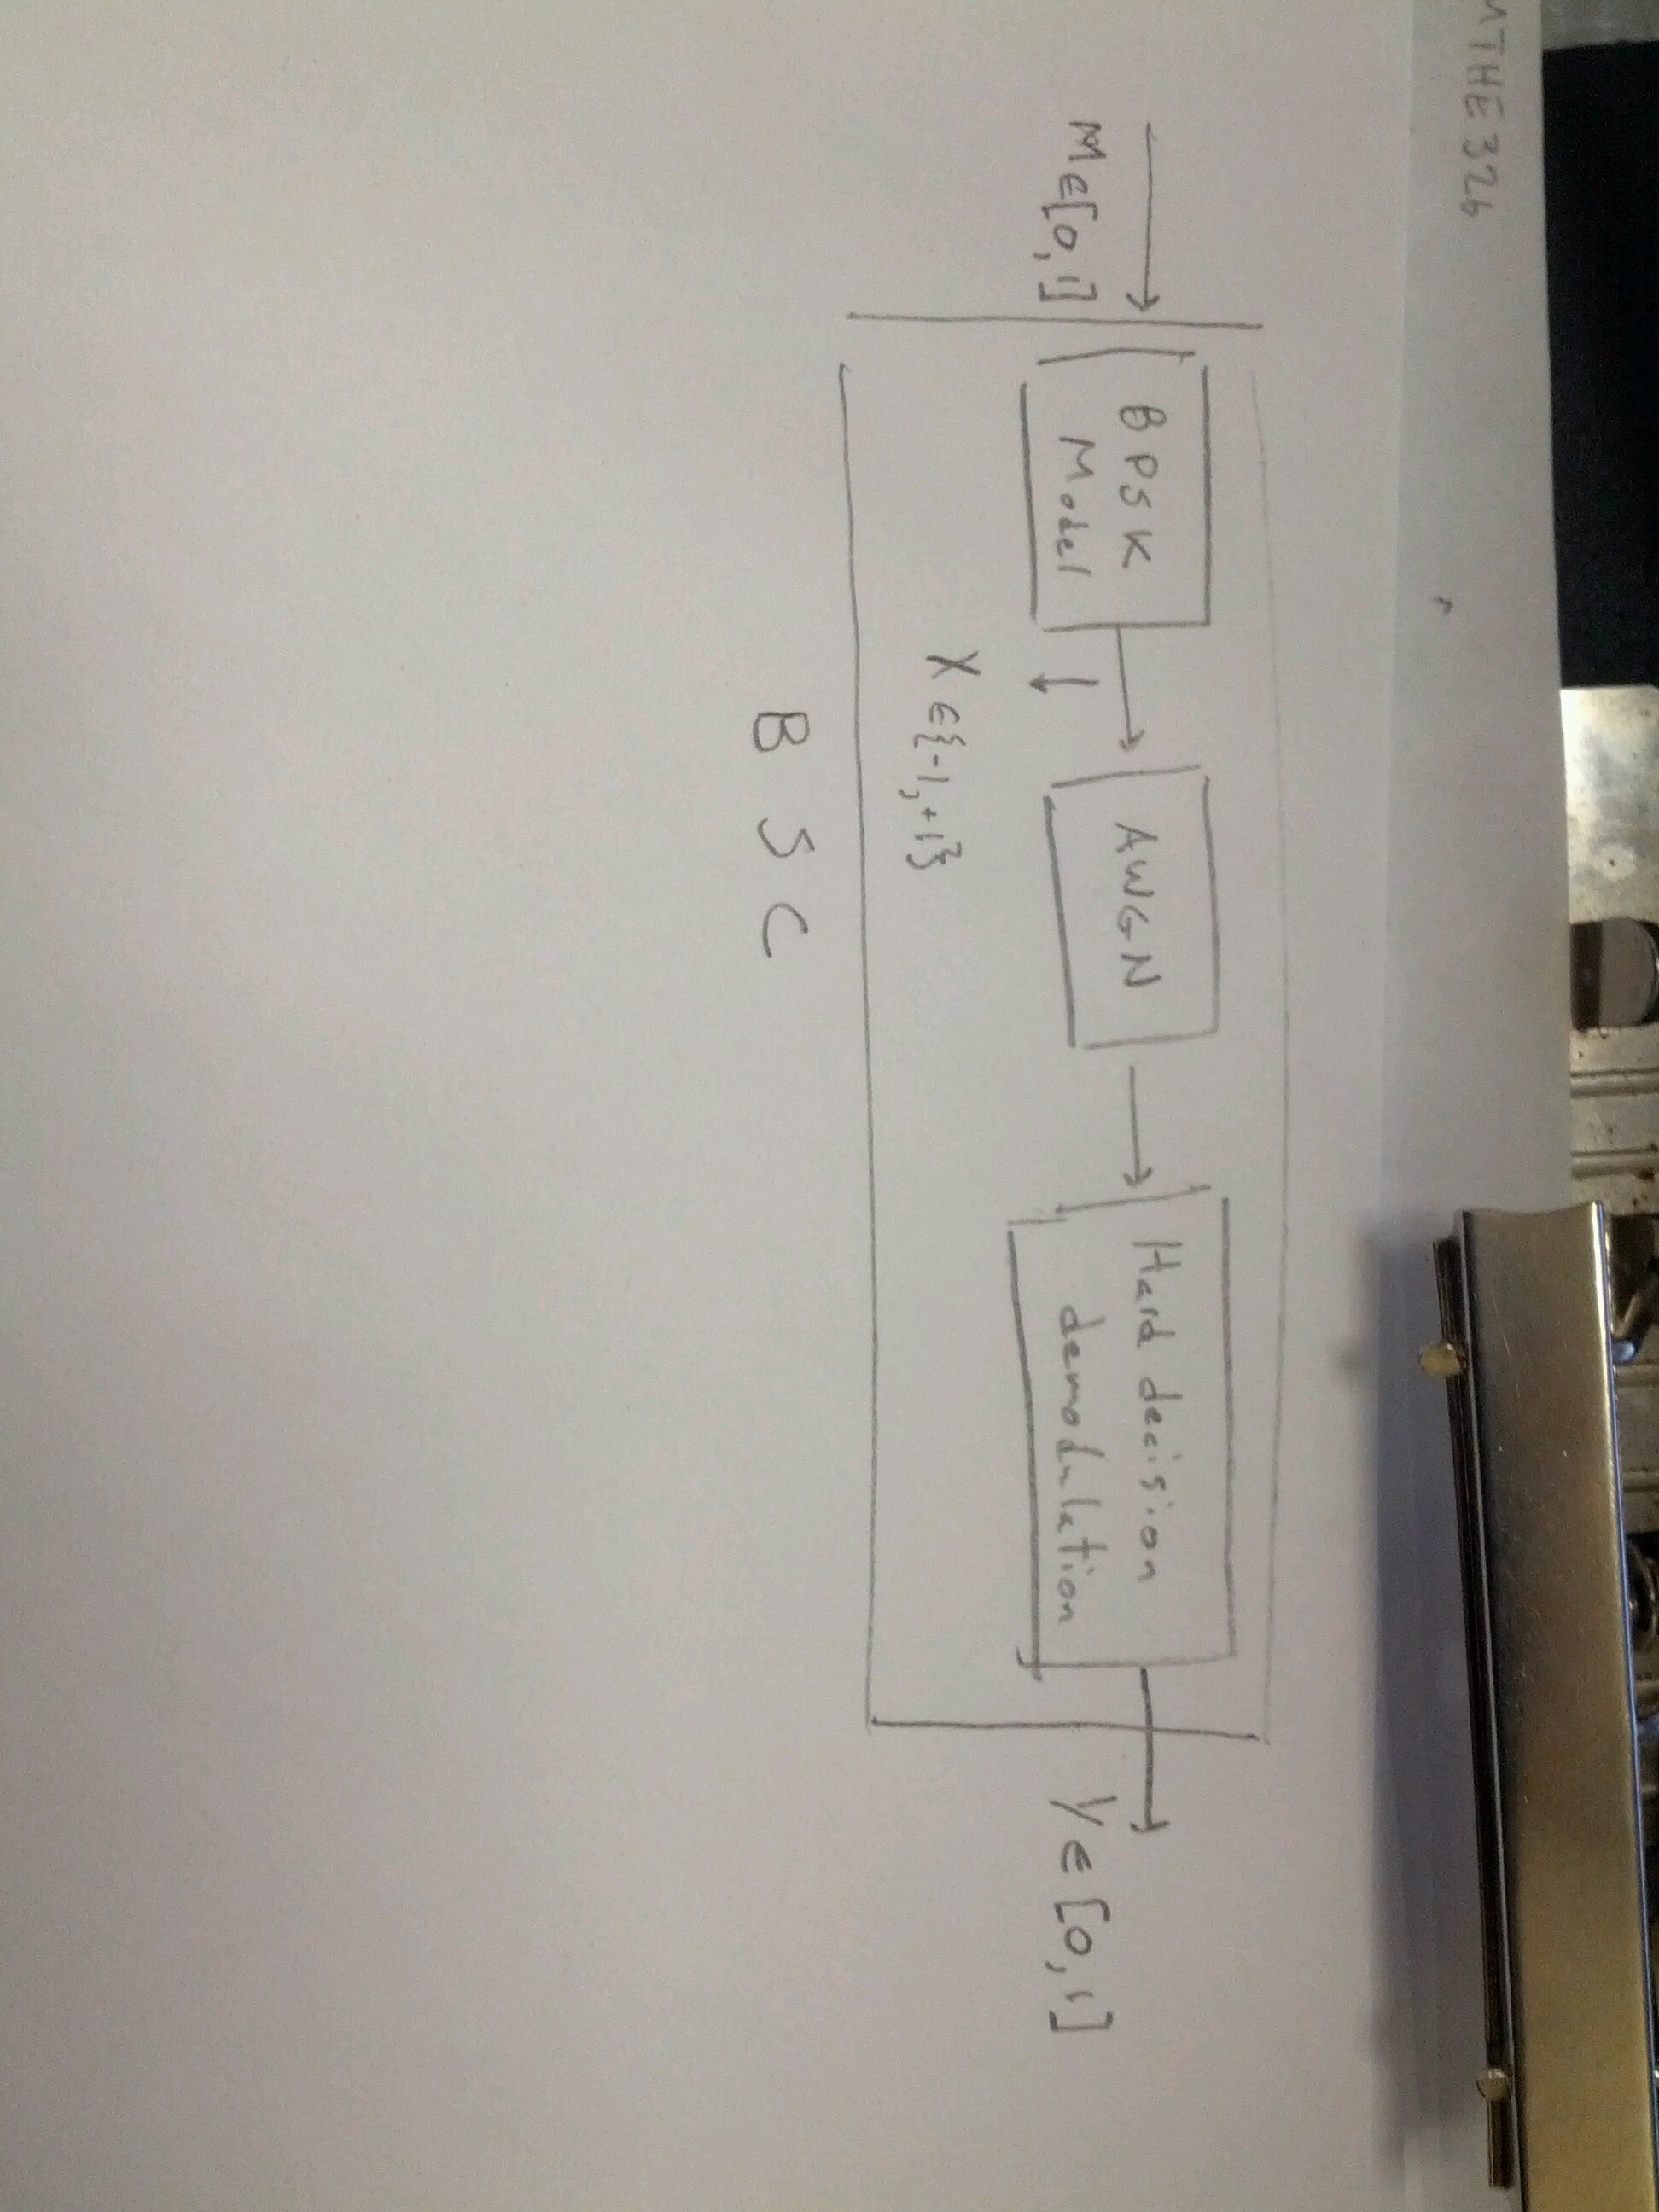 MTHE 326
M∈[0,1]
BPSK
Model
AWGN
Hard decision
demodulation
Y∈[0,1]
X∈{-1,+1}
BSC